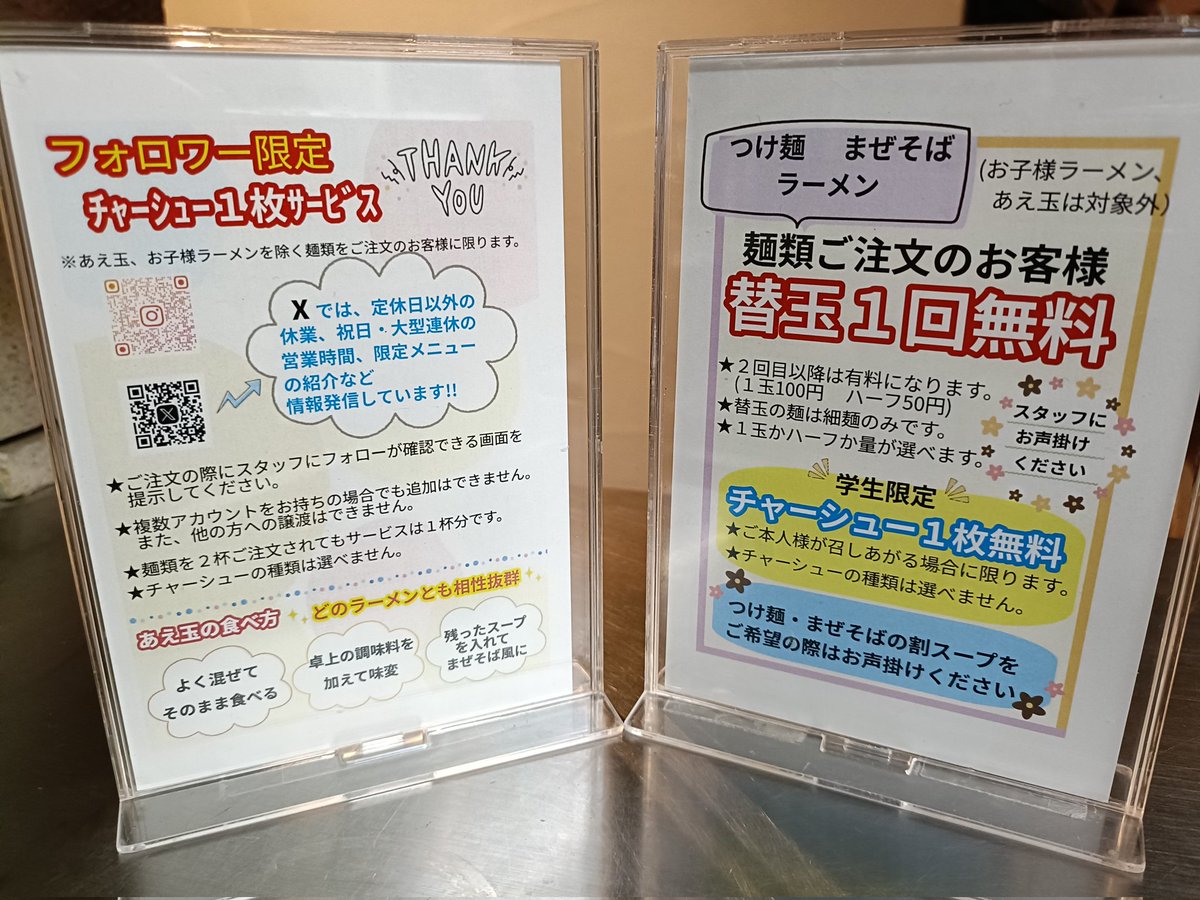 フォロワー限定
チャーシュー１枚サービス
THANK YOU
※あえ玉、お子様ラーメンを除く麺類をご注文のお客様に限ります。
Xでは、定休日以外の
休業、祝日・大型連休の
営業時間、限定メニュー
の紹介など
情報発信しています!!
★ご注文の際にスタッフにフォローが確認できる画面を
提示してください。
★複数アカウントをお持ちの場合でも追加はできません。
また、他の方への譲渡はできません。
★麺類を２杯ご注文されてもサービスは１杯分です。
★チャーシューの種類は選べません。
あえ玉の食べ方
どのラーメンとも相性抜群
よく混ぜて
そのまま食べる
卓上の調味料を
加えて味変
残ったスープ
を入れて
まぜそば風に
つけ麺 まぜそば
ラーメン
(お子様ラーメン、
あえ玉は対象外)
麺類ご注文のお客様
替玉１回無料
★２回目以降は有料になります。
(１玉100円 ハーフ50円)
★替玉の麺は細麺のみです。
★１玉かハーフか量が選べます。
スタッフに
お声掛け
ください
学生限定
チャーシュー１枚無料
★ご本人様が召しあがる場合に限ります。
★チャーシューの種類は選べません。
つけ麺・まぜそばの割スープを
ご希望の際はお声掛けください